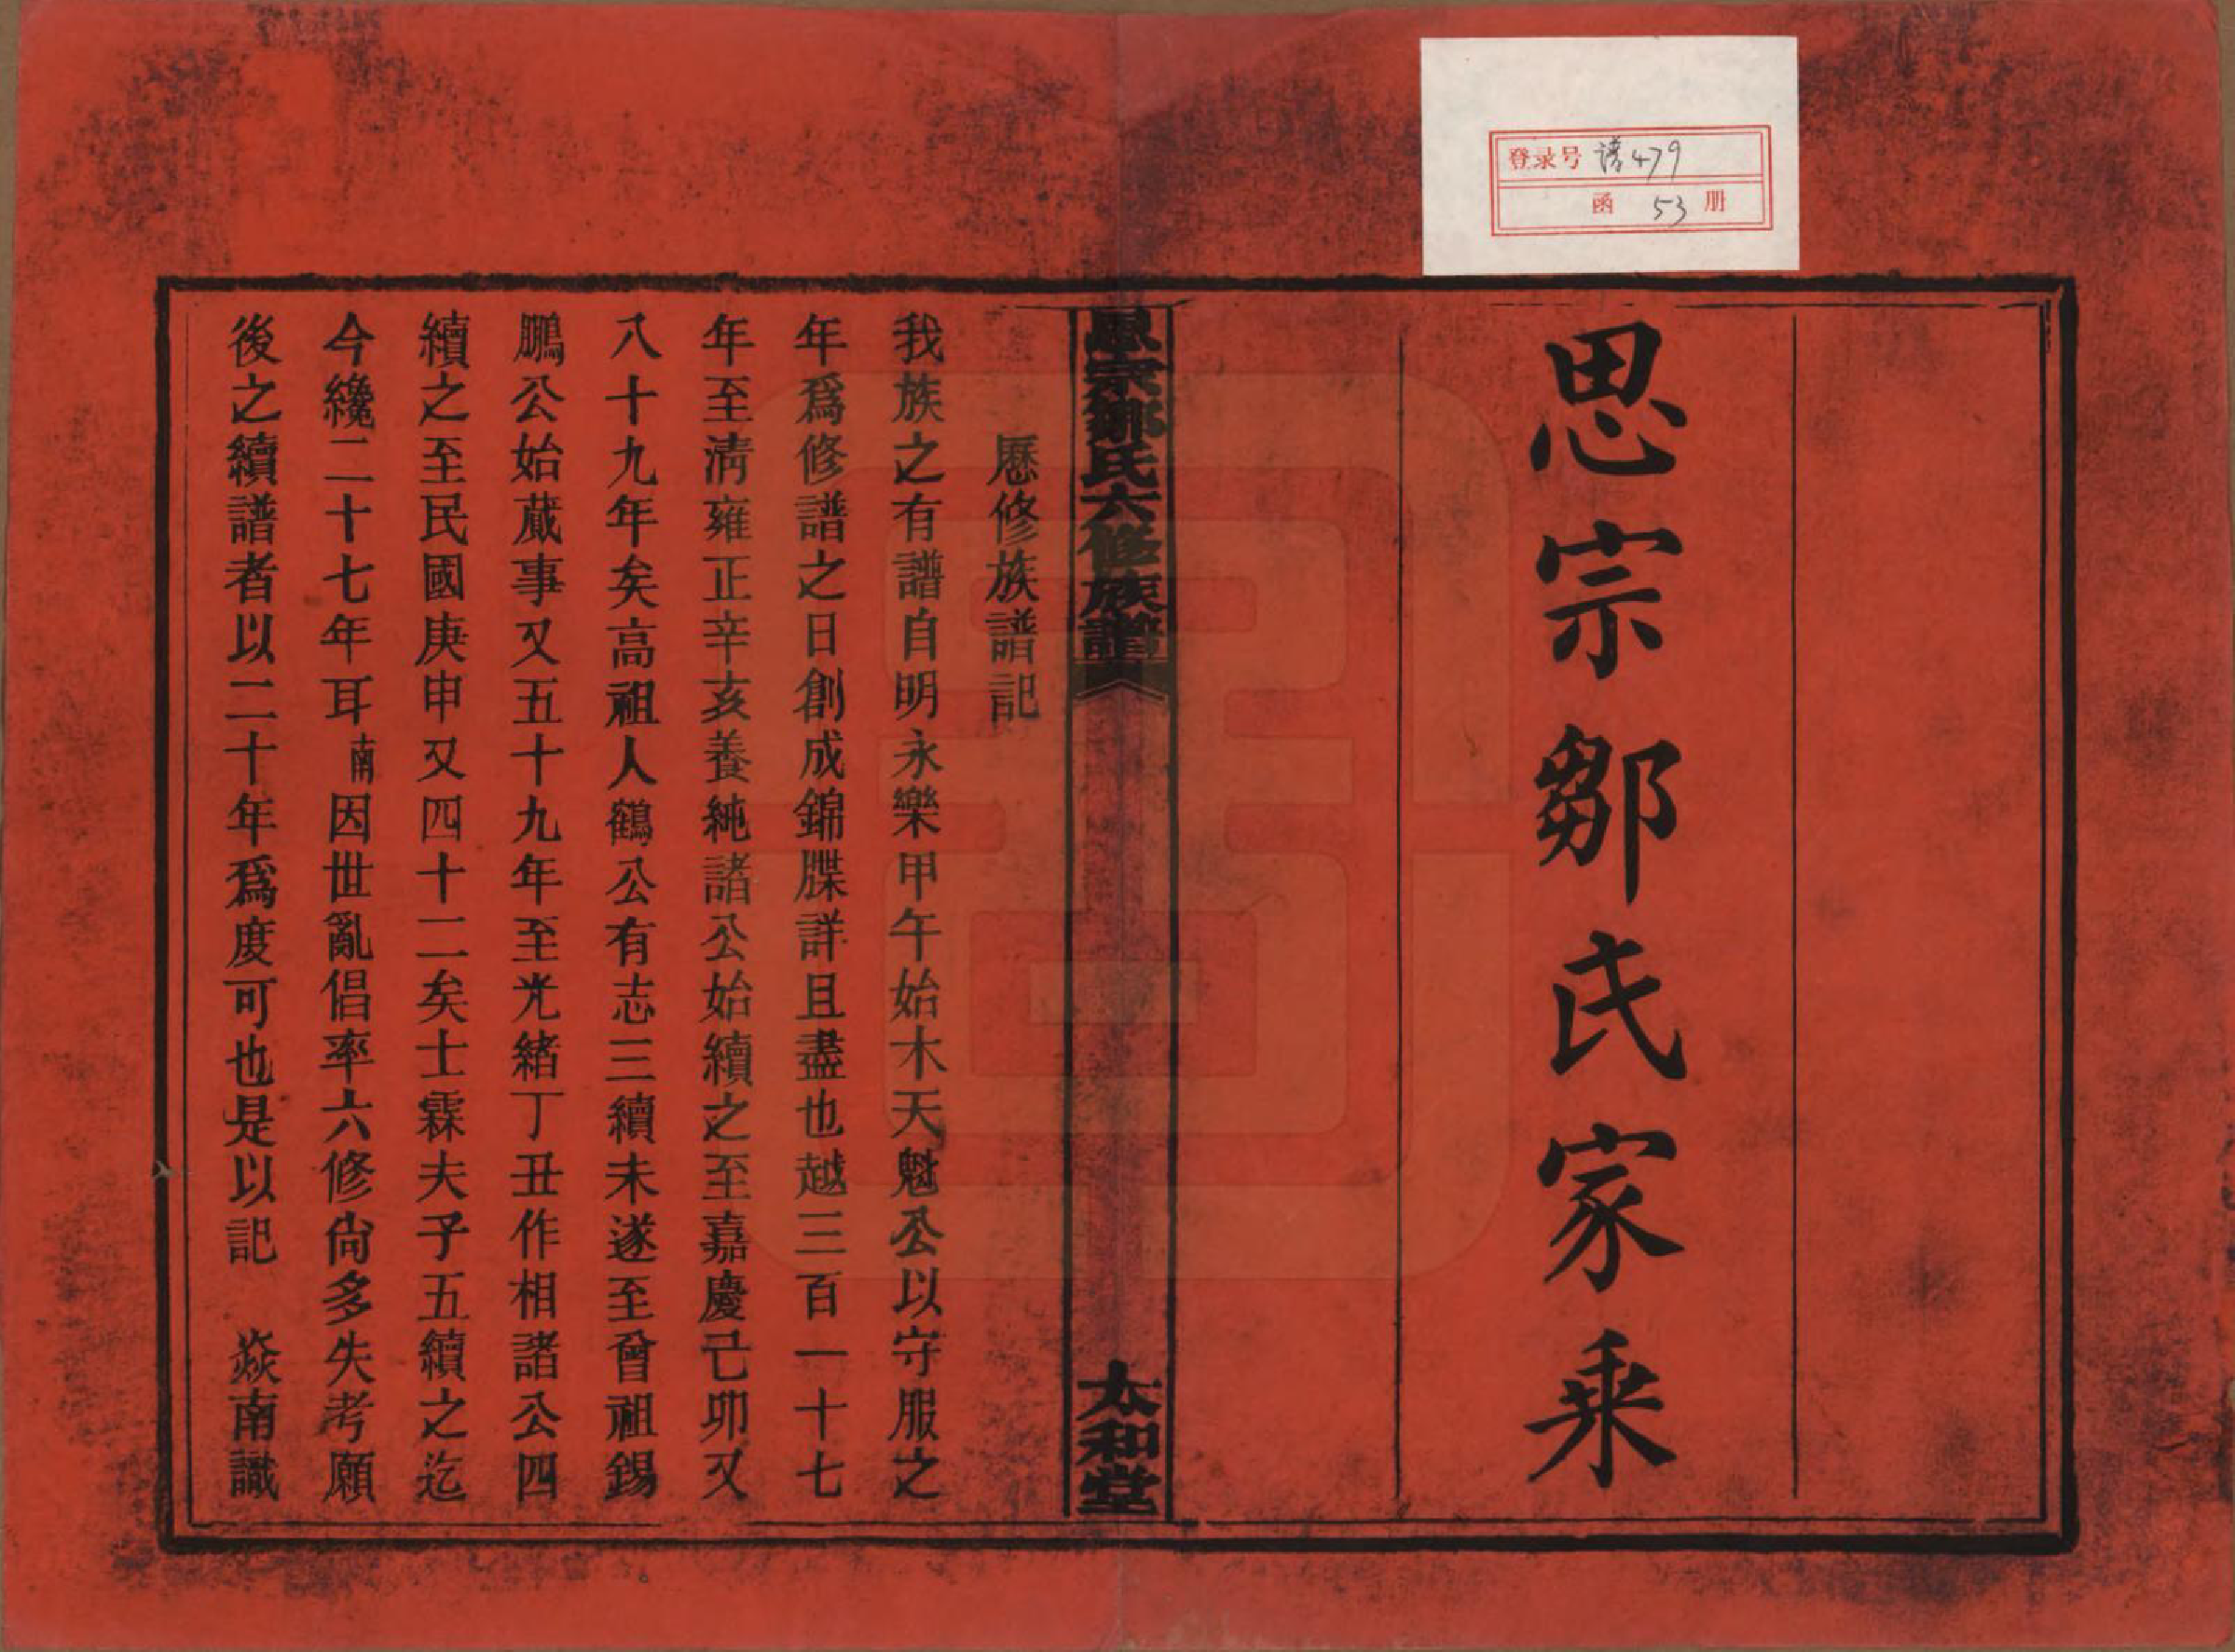 登录号 谱479
函 53 册
思宗鄒氏家乘
思宗鄒氏六修族譜
太和堂
歷修族譜記
我族之有譜自明永樂甲午始木天魁公以守服之
年爲修譜之日創成錦牒詳且盡也越三百一十七
年至清雍正辛亥養純諸公始續之至嘉慶己卯又
八十九年矣高祖人鶴公有志三續未遂至曾祖錫
鵬公始蕆事又五十九年至光緒丁丑作相諸公四
續之至民國庚申又四十二矣士霖夫子五續之迄
今纔二十七年耳南因世亂倡率六修尙多失考願
後之續譜者以二十年爲度可也是以記 焱南識